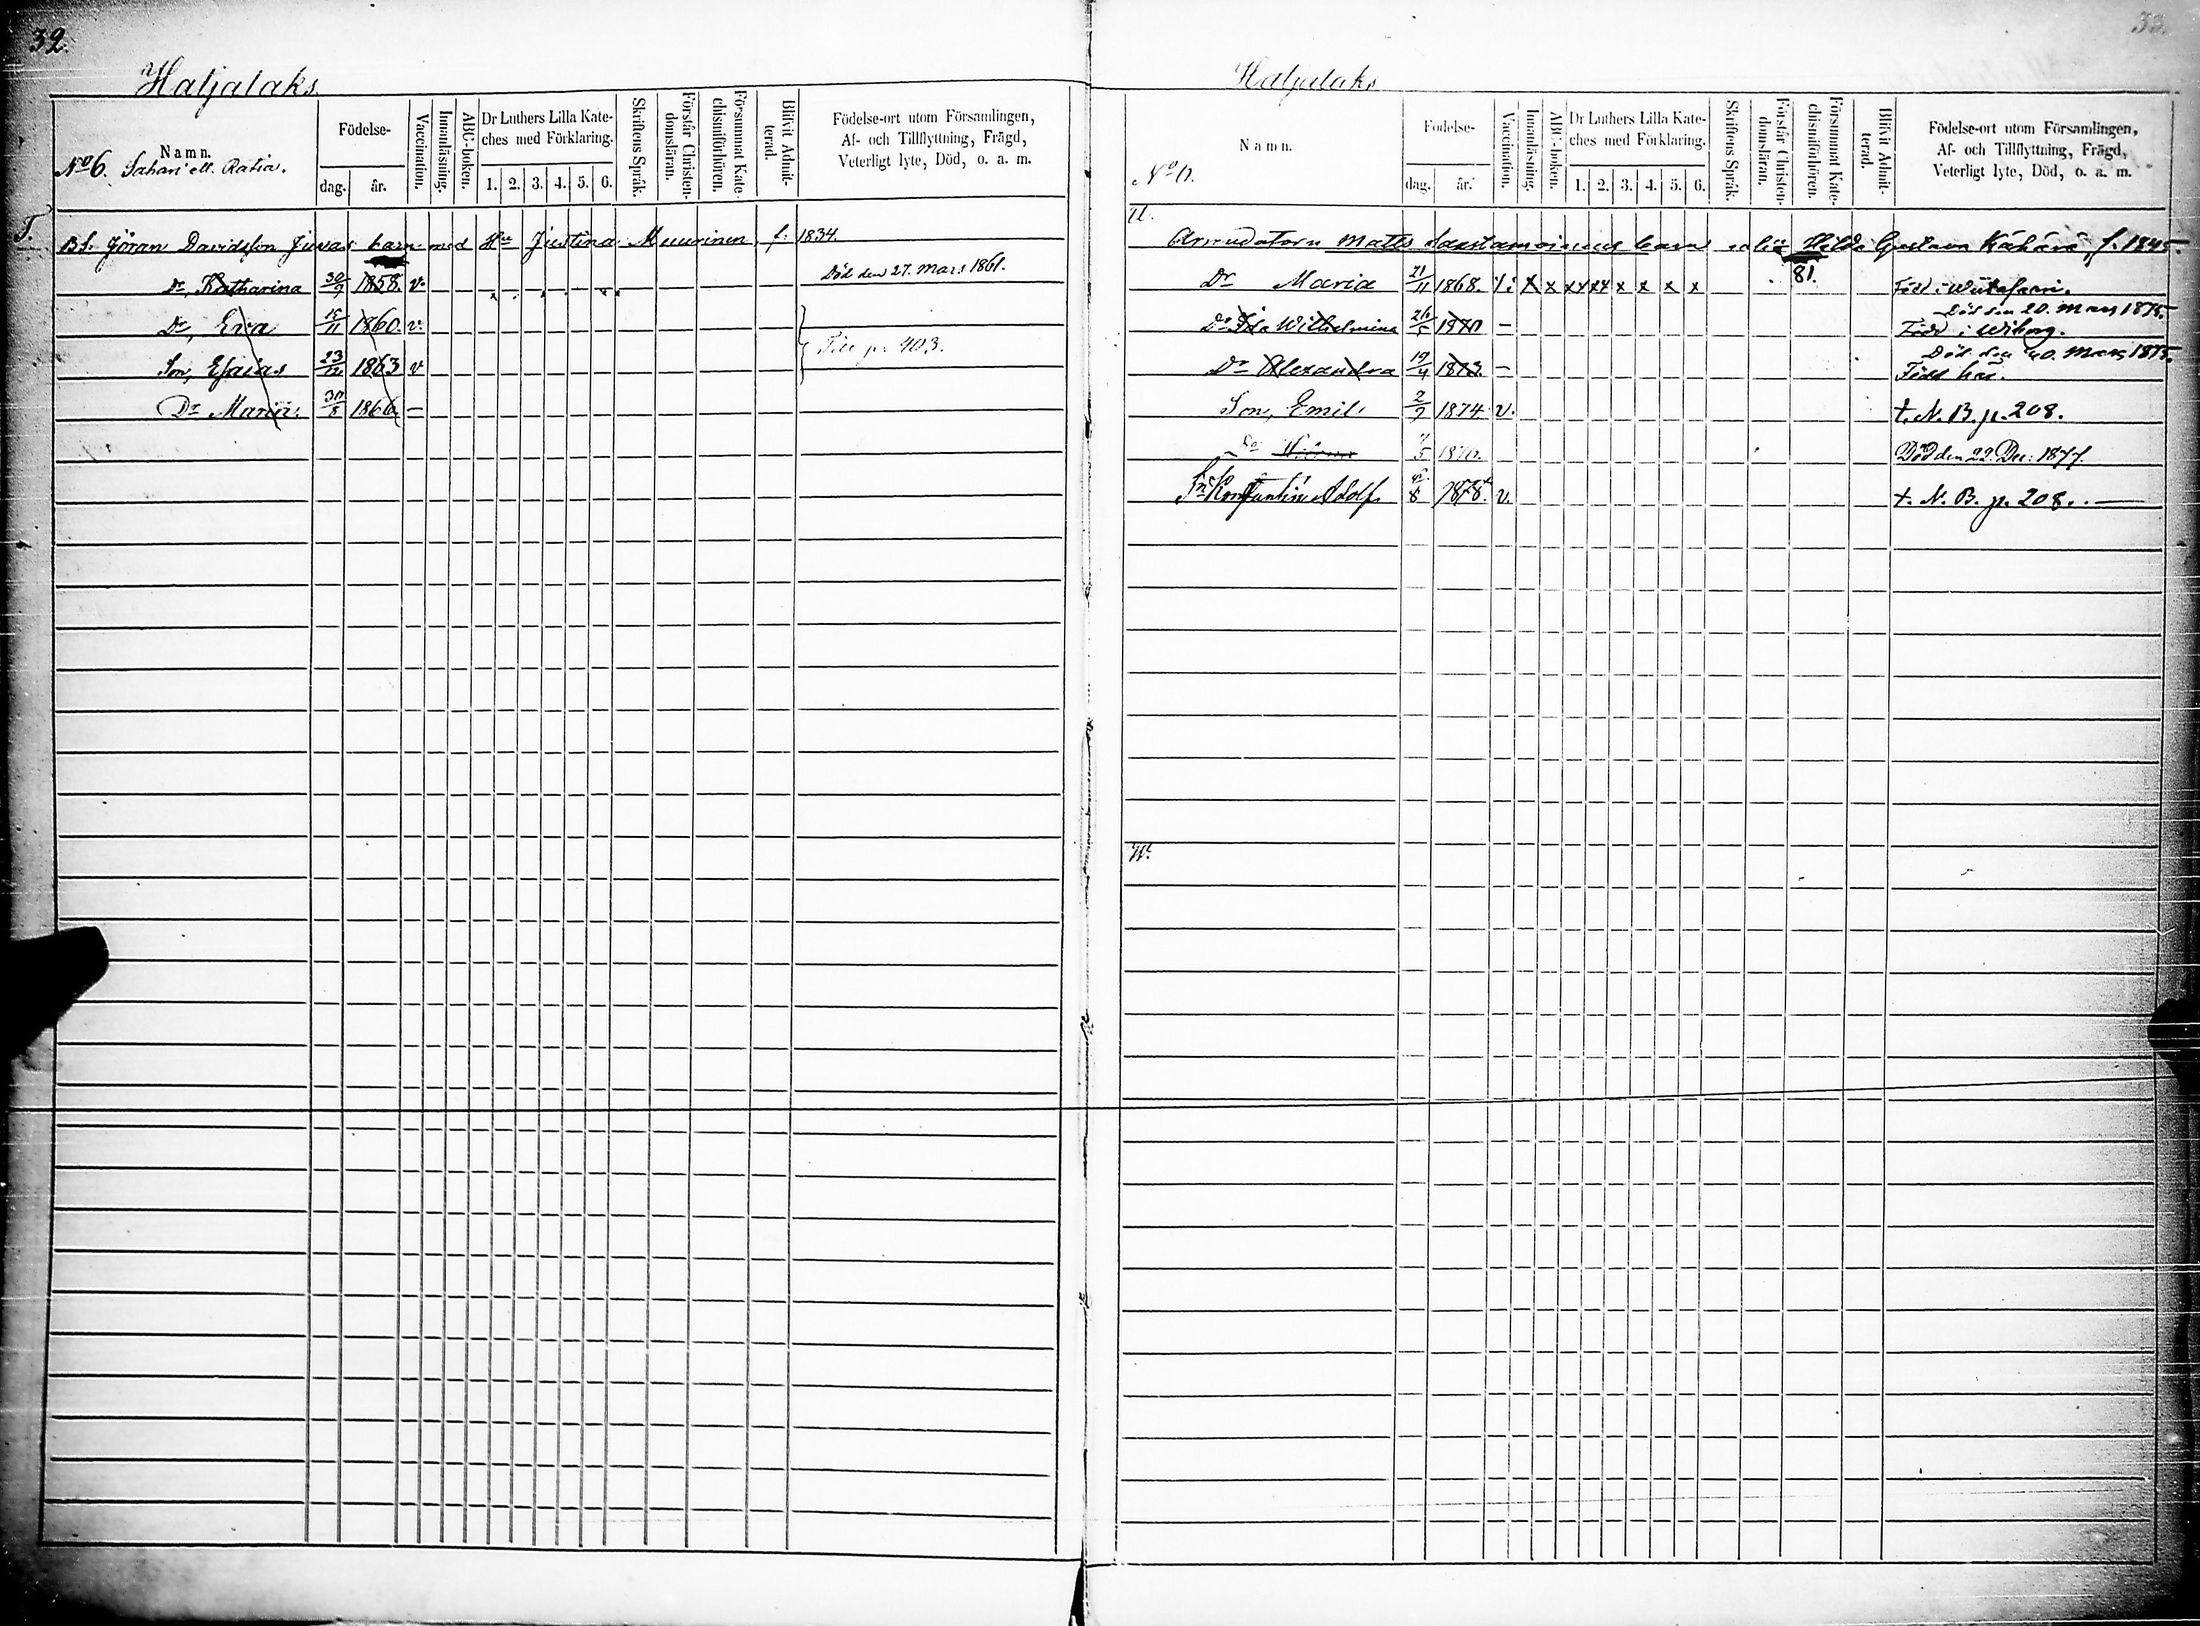 32.
Haljalaks
No 6. Namn. Sahari ell. Ratia.
Födelse-
dag. år.
Vaccination.
Innanläsning.
ABC-boken.
Dr Luthers Lilla Kate-
ches med Förklaring.
1. 2. 3. 4. 5. 6.
Skriftens Språk.
Förstår Christen-
domsläran.
Försummat Kate-
chismiförhören.
Blifvit Admit-
terad.
Födelse-ort utom Församlingen,
Af- och Tillflyttning, Frägd,
Veterligt lyte, Död, o. a. m.
T.
BS. Jöran Davidsson barn med Hu Justina Muurinen f. 1834.
Dr, Katharina 30/9 1858. v. Död den 27. Mars 1861.
Dr, Eva 1860. v.
Son, Esaias 23/12 1863 v Till p. 403.
Dr Maria 1866 —
33.
Haljalaks
Namn.
No 6.
Födelse-
dag. år.
Vaccination.
Innanläsning.
ABC-boken.
Dr Luthers Lilla Kate-
ches med Förklaring.
1. 2. 3. 4. 5. 6.
Skriftens Språk.
Förstår Christen-
domsläran.
Försummat Kate-
chismiförhören.
Blifvit Admit-
terad.
Födelse-ort utom Församlingen,
Af- och Tillflyttning, Frägd,
Veterligt lyte, Död, o. a. m.
U.
Arrendatorn Matts Sarstamoinens barn Hilda Gustava Kähärä, f. 1845.
Dr Maria 21/11 1868. x x x x x x x x 81. Född i
Död den 20. Mars 1875.
Dr Ida Wilhelmina — Född i Wiborg.
Död den 20. Mars 1875.
Dr Alexandra 19/4 1873. — Född här.
Son, Emil 2/9 1874. v. t. N. B. p. 208.
1876. Död den 22. Dec: 1877.
Sn Konstantin Adolf 1878. v. t. N. B. p. 208. —
W.